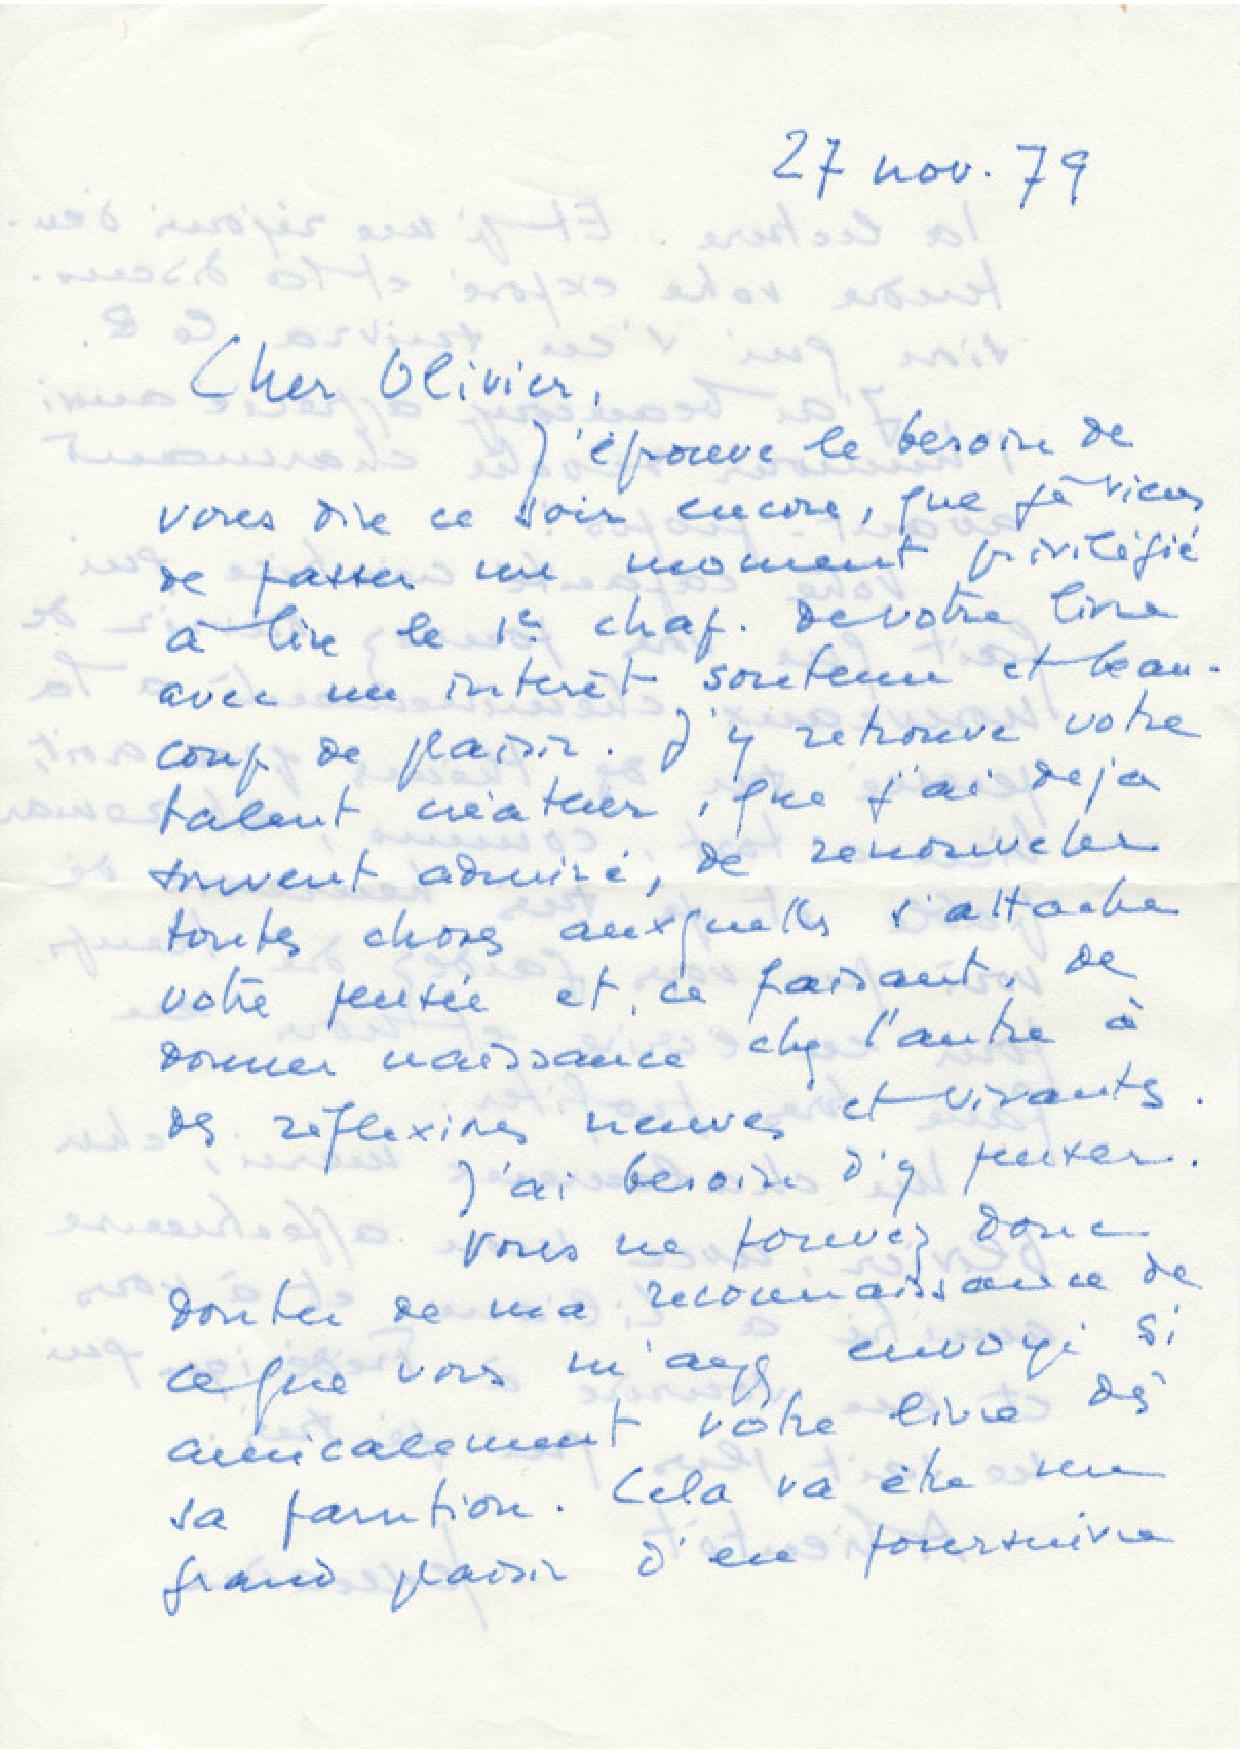 27 nov. 79
Cher Olivier,
J'éprouve le besoin de
vous dire ce soir encore, que je viens
de passer un moment privilégié
à lire le 1er chap. de votre livre
avec un intérêt soutenu et beau-
coup de plaisir. J'y retrouve votre
talent créateur, que j'ai déjà
souvent admiré, de renouveler
toutes choses auxquelles s'attache
votre pensée et, ce faisant, de
donner naissance chez l'autre à
des réflexions neuves et vivantes.
J'ai besoin d'y penser.
Vous ne pouvez donc
douter de ma reconnaissance de
ce que vous m'ayez envoyé si
amicalement votre livre dès
sa parution. Cela va être un
grand plaisir d'en poursuivre